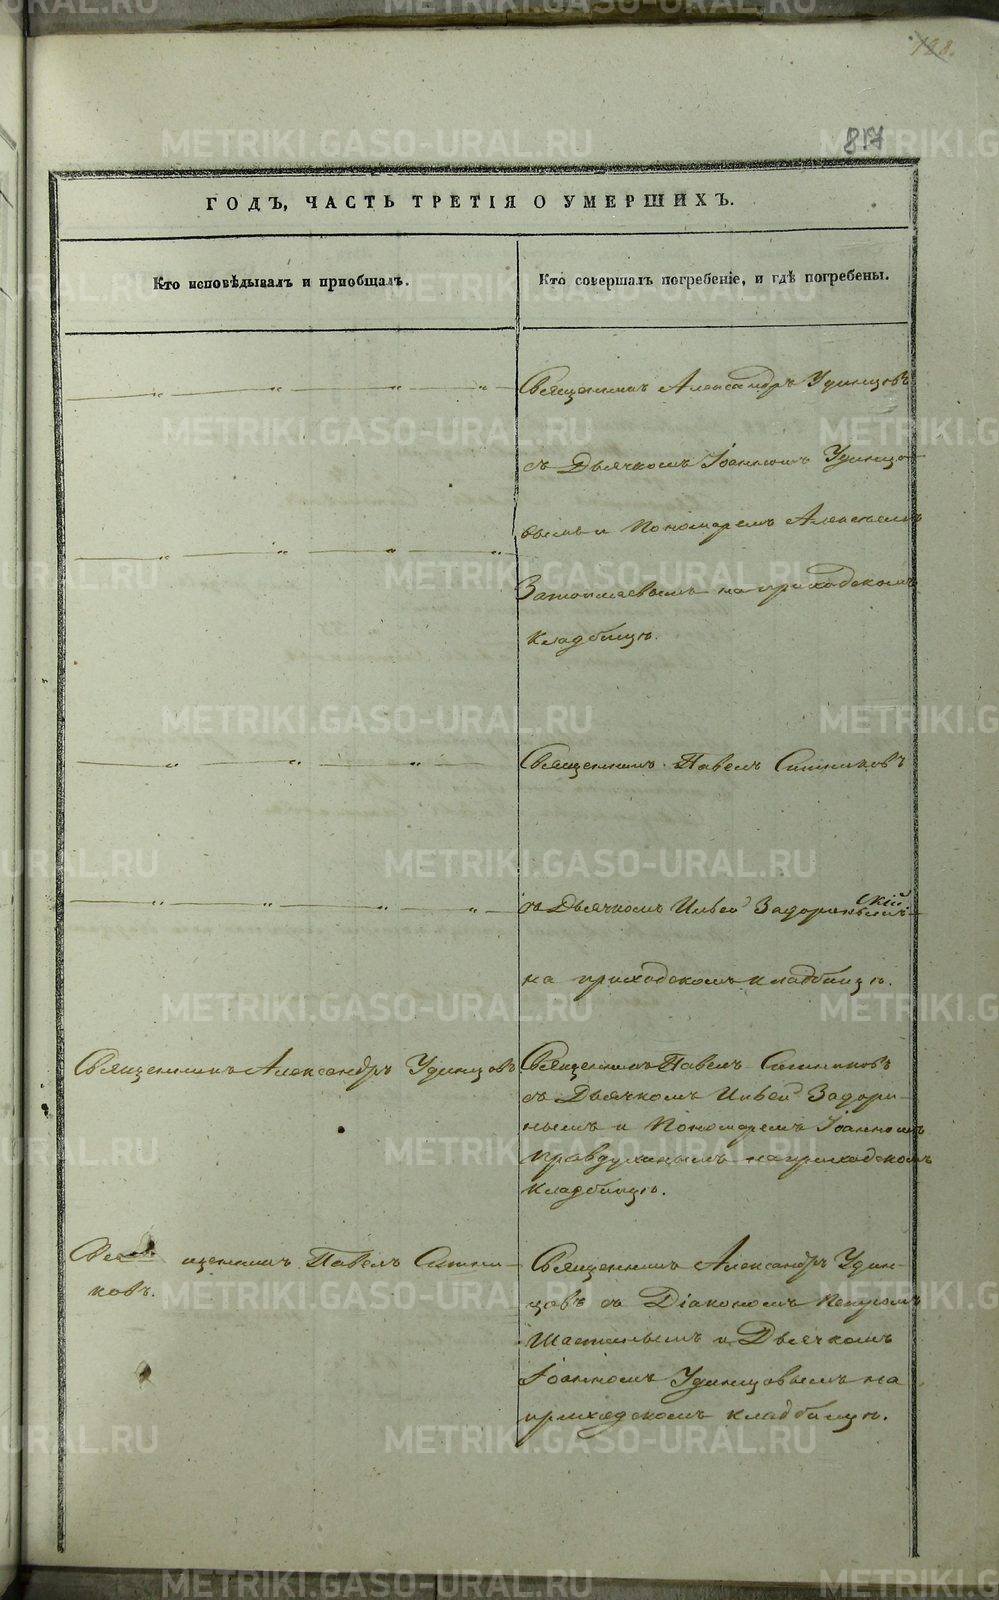 128.
817
ГОДЪ, ЧАСТЬ ТРЕТІЯ О УМЕРШИХЪ.
Кто исповѣдывалъ и пріобщалъ.
Кто совершалъ погребеніе, и гдѣ погребены.
Священникъ Александръ Удинцовъ
съ Дьячкомъ Іоанномъ Удинцо-
вымъ и Пономаремъ Алексѣемъ
на приходскомъ
кладбищѣ.
Священникъ Павелъ Ситниковъ
съ Дьячкомъ Задорин
скій
на приходскомъ кладбищѣ.
Священникъ Александръ Удинцовъ
Священникъ Павелъ Ситниковъ
съ Дьячкомъ Задори-
нымъ и Пономаремъ Іоанномъ
Правдухинымъ на приходскомъ
кладбищѣ.
Священникъ Павелъ Ситни-
ковъ.
Священникъ Александръ Удин-
цовъ съ Діакономъ Петромъ
и Дьячкомъ
Іоанномъ Удинцовымъ на
приходскомъ кладбищѣ.
METRIKI.GASO-URAL.RU